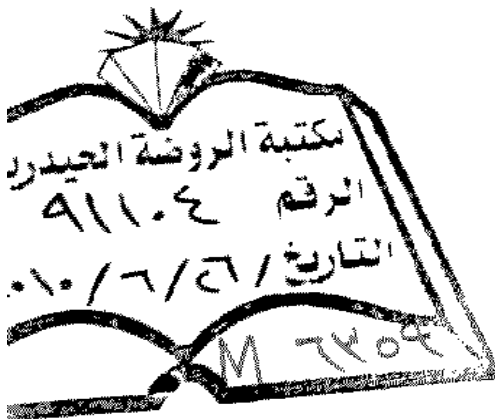 مكتبة الروضة الحيدري
الرقم ٩١١٠٤
التاريخ / ٢٦ / ٦ / ٠١٠
M ٦٣٥٩